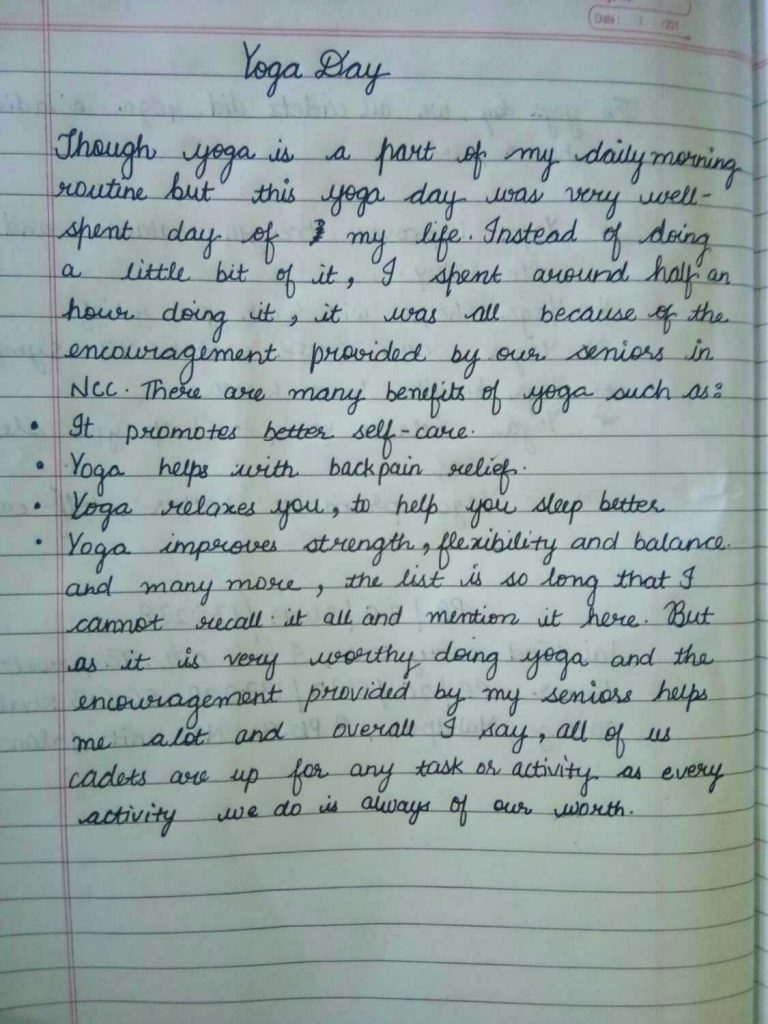 Date: / /201
Yoga Day
Though yoga is a part of my daily morning
routine but this yoga day was very well-
spent day of my life. Instead of doing
a little bit of it, I spent around half an
hour doing it, it was all because of the
encouragement provided by our seniors in
NCC. There are many benefits of yoga such as:
• It promotes better self-care.
• Yoga helps with back pain relief.
• Yoga relaxes you, to help you sleep better
• Yoga improves strength, flexibility and balance.
and many more, the list is so long that I
cannot recall it all and mention it here. But
as it is very worthy doing yoga and the
encouragement provided by my seniors helps
me alot and overall I say, all of us
cadets are up for any task or activity as every
activity we do is always of our worth.